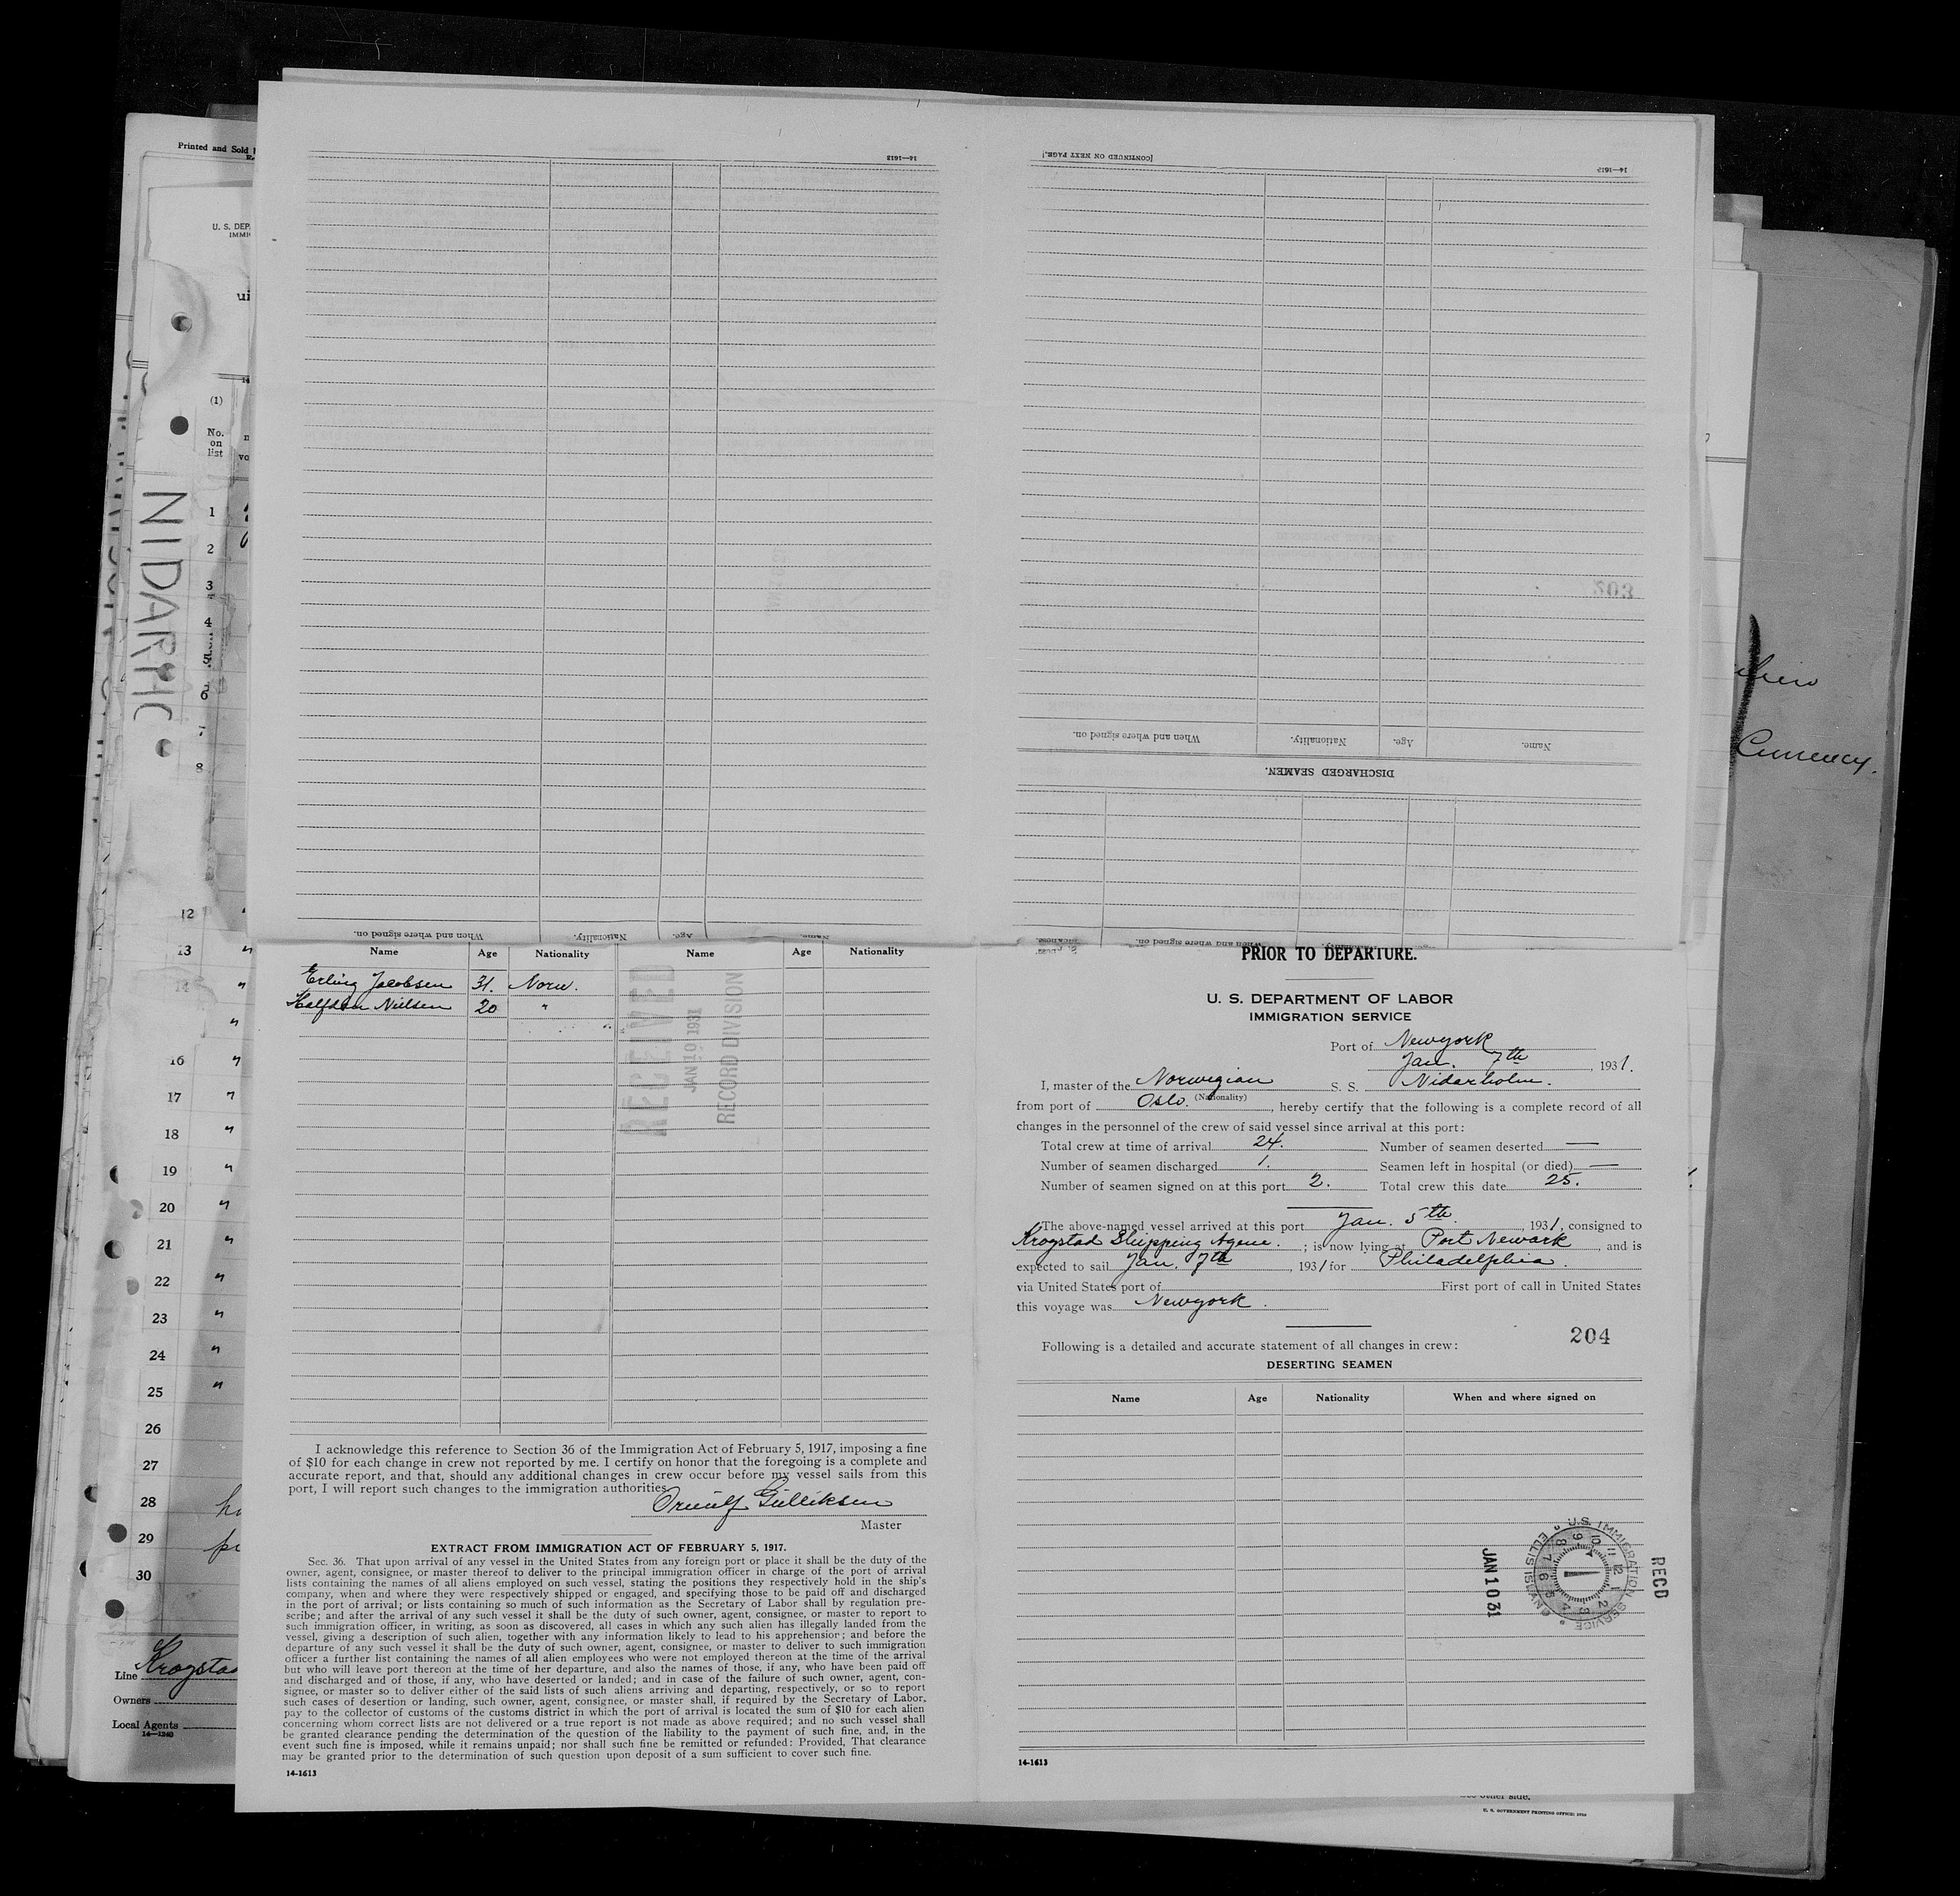 Printed and Sold
U. S. DEP.
IMMI
(1)
No.
on
list
NIDARHO
1
2
3
4
6
7
8
12
13
14
16
17
18
19
20
21
22
23
24
25
26
27
28
29
30
Line Krogstad
Owners
Local Agents
14—1240
14—1613
When and where signed on.
Nationality.
Age.
Name.
[CONTINUED ON NEXT PAGE.]
14—1613
303
When and where signed on.
Nationality.
Age.
Name.
DISCHARGED SEAMEN.
When and where signed on.
Currency.
Name Age Nationality Name Age Nationality
Erling Jacobsen 31. Norw.
Halfdan Nielsen 20 "
RECEIVED
JAN 10 1931
RECORD DIVISION
I acknowledge this reference to Section 36 of the Immigration Act of February 5, 1917, imposing a fine
of $10 for each change in crew not reported by me. I certify on honor that the foregoing is a complete and
accurate report, and that, should any additional changes in crew occur before my vessel sails from this
port, I will report such changes to the immigration authorities.
Ornulf Gulliksen
Master
EXTRACT FROM IMMIGRATION ACT OF FEBRUARY 5, 1917.
Sec. 36. That upon arrival of any vessel in the United States from any foreign port or place it shall be the duty of the
owner, agent, consignee, or master thereof to deliver to the principal immigration officer in charge of the port of arrival
lists containing the names of all aliens employed on such vessel, stating the positions they respectively hold in the ship's
company, when and where they were respectively shipped or engaged, and specifying those to be paid off and discharged
in the port of arrival; or lists containing so much of such information as the Secretary of Labor shall by regulation pre-
scribe; and after the arrival of any such vessel it shall be the duty of such owner, agent, consignee, or master to report to
such immigration officer, in writing, as soon as discovered, all cases in which any such alien has illegally landed from the
vessel, giving a description of such alien, together with any information likely to lead to his apprehension; and before the
departure of any such vessel it shall be the duty of such owner, agent, consignee, or master to deliver to such immigration
officer a further list containing the names of all alien employees who were not employed thereon at the time of the arrival
but who will leave port thereon at the time of her departure, and also the names of those, if any, who have been paid off
and discharged and of those, if any, who have deserted or landed; and in case of the failure of such owner, agent, con-
signee, or master so to deliver either of the said lists of such aliens arriving and departing, respectively, or so to report
such cases of desertion or landing, such owner, agent, consignee, or master shall, if required by the Secretary of Labor,
pay to the collector of customs of the customs district in which the port of arrival is located the sum of $10 for each alien
concerning whom correct lists are not delivered or a true report is not made as above required; and no such vessel shall
be granted clearance pending the determination of the question of the liability to the payment of such fine, and, in the
event such fine is imposed, while it remains unpaid; nor shall such fine be remitted or refunded: Provided, That clearance
may be granted prior to the determination of such question upon deposit of a sum sufficient to cover such fine.
14-1613
PRIOR TO DEPARTURE.
U. S. DEPARTMENT OF LABOR
IMMIGRATION SERVICE
Port of Newyork
Jan. 7th, 1931.
I, master of the Norwegian S. S. Nidarholm.
(Nationality)
from port of Oslo., hereby certify that the following is a complete record of all
changes in the personnel of the crew of said vessel since arrival at this port:
Total crew at time of arrival 24. Number of seamen deserted —
Number of seamen discharged 1. Seamen left in hospital (or died) —
Number of seamen signed on at this port 2. Total crew this date 25.
The above-named vessel arrived at this port Jan. 5th, 1931, consigned to
Krogstad Shipping Agenc.; is now lying at Port Newark, and is
expected to sail Jan. 7th, 1931 for Philadelphia.
via United States port of First port of call in United States
this voyage was Newyork.
204
Following is a detailed and accurate statement of all changes in crew:
DESERTING SEAMEN
Name Age Nationality When and where signed on
U.S. IMMIGRATION SERVICE ELLIS ISLAND
RECD
JAN 10 31
14-1613
U. S. GOVERNMENT PRINTING OFFICE: 1930